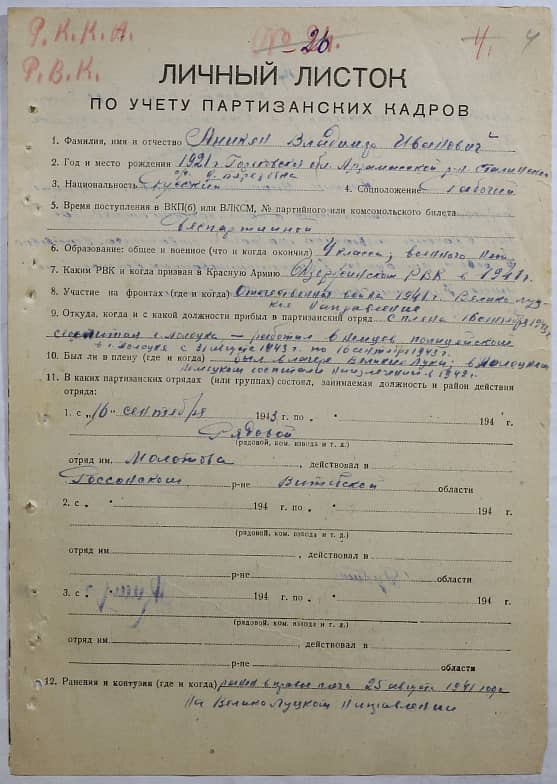 Р.К.К.А. № 26 4. 4
Р.В.К.
ЛИЧНЫЙ ЛИСТОК
ПО УЧЕТУ ПАРТИЗАНСКИХ КАДРОВ
1. Фамилия, имя и отчество Аникян Владимир Иванович
2. Год и место рождения 1921 г. Горьковской обл. Арзамасский р-н
3. Национальность Русский 4. Соцположение Рабочий
5. Время поступления в ВКП(б) или ВЛКСМ, № партийного или комсомольского билета
Беспартийный
6. Образование: общее и военное (что и когда окончил) 4 класса, военного нет
7. Каким РВК и когда призван в Красную Армию РВК в 1941 г.
8. Участие на фронтах (где и когда) Отечественная война 1941 г. Великолуз-
кое направление
9. Откуда, когда и с какой должности прибыл в партизанский отряд с плена
г. Полоцка — работал в немцев полицейском
в г. Полоцке с 31 августа 1943 г. по 16 сентября 1943 г.
10. Был ли в плену (где и когда) был в лагере Великие Луки; в Полоцком
Немецком в 1942 г.
11. В каких партизанских отрядах (или группах) состоял, занимаемая должность и район действия
отряда:
1. с „16" сентября 1943 г. по „ " 194 г.
Рядовой
(рядовой, ком. взвода и т. д.)
отряд им. Молотова, действовал в
Россонском р-не Витебской области
2. с „ " 194 г. по „ " 194 г.
(рядовой, ком. взвода и т. д.)
отряд им. , действовал в
р-не области
3. с „ " 194 г. по „ " 194 г.
(рядовой, ком. взвода и т. д.)
отряд им. , действовал в
р-не области
12. Ранения и контузии (где и когда) ранен в правое плечо 25 августа 1941 года
на Великолуцком направлении